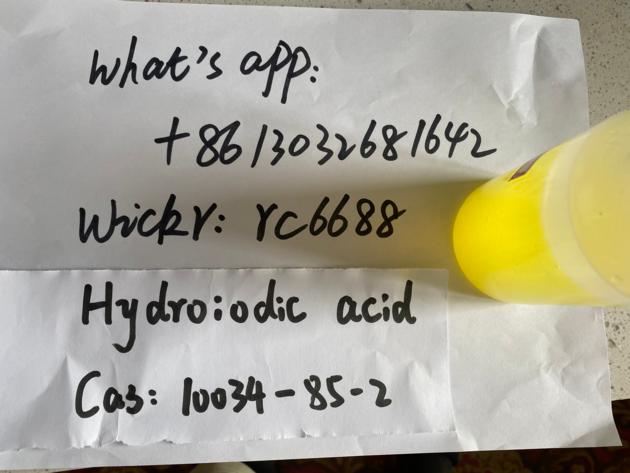 what's app:
+8613032681642
Wickr: rc6688
Hydroiodic acid
Cas: 10034-85-2